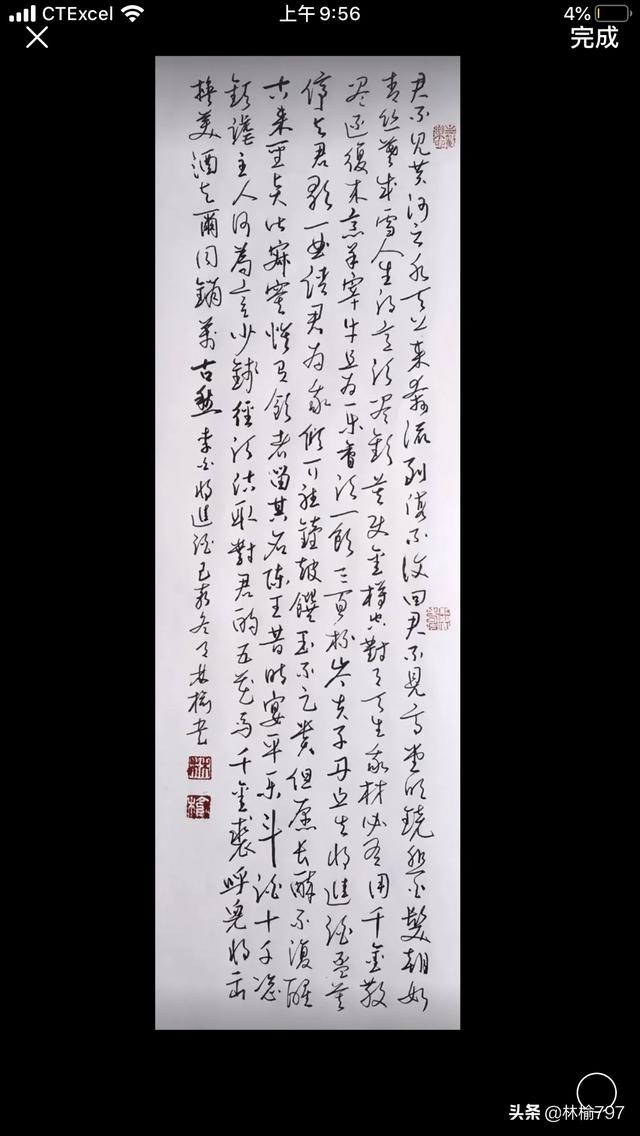 CTExcel 上午9:56 4%
完成
君不见黄河之水天上来奔流到海不復回君不見高堂明鏡悲白髮朝如
青丝暮成雪人生得意须尽歡莫使金樽空對月天生我材必有用千金散
尽还復来烹羊宰牛且為一乐會须一飲三百杯岑夫子丹丘生将進酒盃莫
停与君歌一曲請君為我傾耳聽鐘鼓饌玉不足貴但愿長醉不復醒
古来聖贤皆寂寞惟有飲者留其名陳王昔時宴平乐斗酒十千恣
歡謔主人何為言少錢徑须沽取對君酌五花馬千金裘呼児将出
换美酒与爾同銷萬古愁 李白将進酒己亥冬月林榆书
林
榆
头条 @林榆797